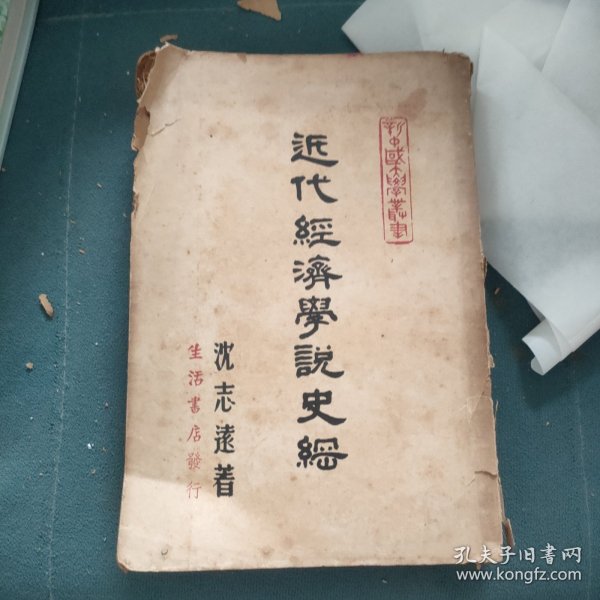 新中國大學叢書
近代經濟學説史綱
沈志遠著
生活書店發行
孔夫子旧書网
www.kongfz.com